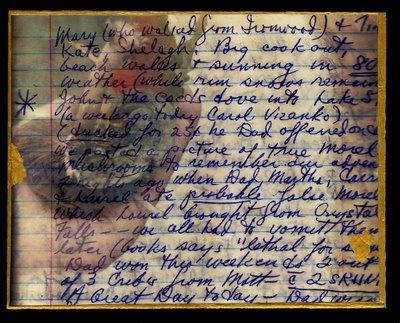 Mary (who walked from Ironwood) &
Kate Shelagh. Big cook out,
beach walks & sunning in 80
weather (while rim snows remain
John & the Coeds dove into Lake S
(a week ago today Carol Vizanko),
(ducked for 25¢ he Dad offered
we posted a picture of true Morel
Mushrooms to remember our
nights ago when Dad, Martha,
& Laurel ate probably false Morel
which Laurel brought from Crystal
Falls -- we all had to vomit
later (books says "lethal for
Dad won this weekends 2 out
of 3 Cribs from Mott -
"A Great Day Today - Dad